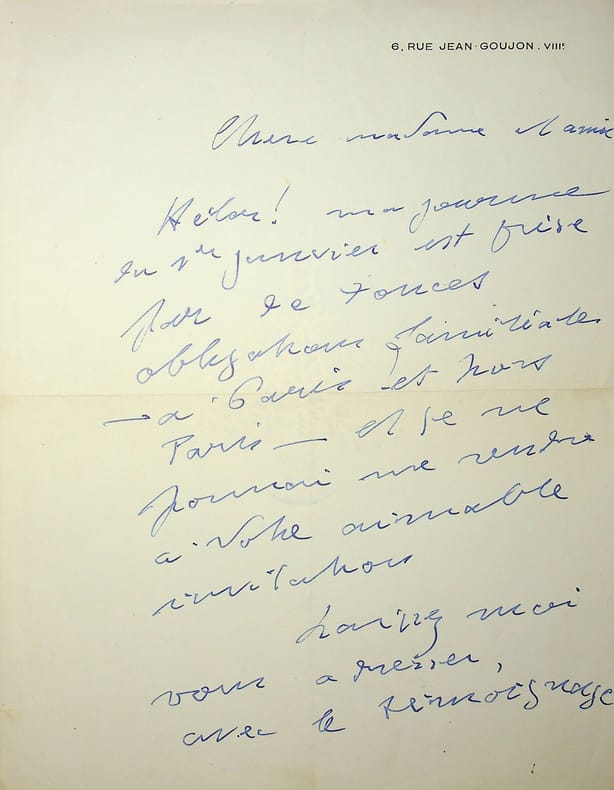 6, RUE JEAN-GOUJON. VIII!
Chère madame et amie
Hélas! ma journée
du 1er janvier est prise
par de
obligations familiales
— à Paris et hors
Paris — et je ne
pourrai me rendre
à votre aimable
invitation
Laissez moi
vous adresser,
avec le témoignage